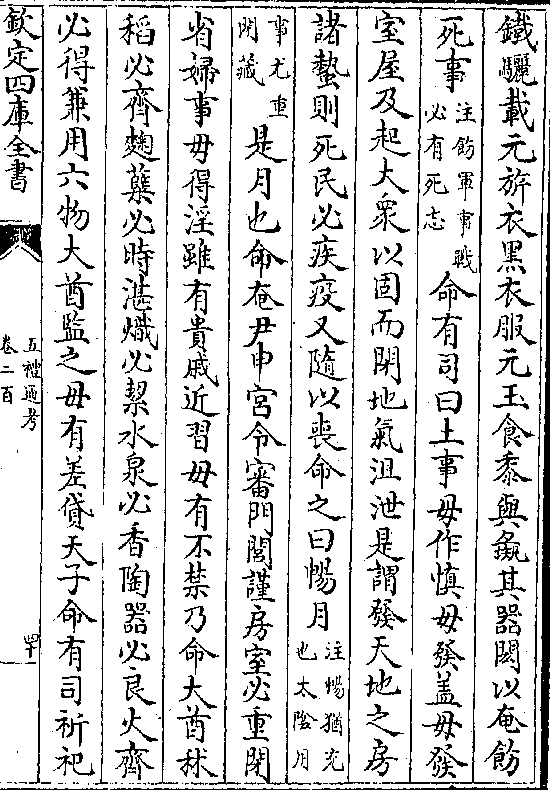 鐵驪載元旂衣黑衣服元玉食黍與彘其器閎以奄飭
死事注飭軍事戰必有死志命有司曰土事毋作慎毋發蓋毋發
室屋及起大衆以固而閉地氣沮泄是謂發天地之房
諸蟄則死民必疾疫又隨以喪命之曰暢月注暢猶充也太陰用
事尤重閉藏是月也命奄尹申宮令審門閭謹房室必重閉
省婦事毋得淫雖有貴戚近習毋有不禁乃命大酋秫
稻必齊麴糱必時湛熾必絜水泉必香陶器必良火齊
必得兼用六物大酋監之毋有差貸天子命有司祈祀
欽定四庫全書
五禮通考
卷二百
四十